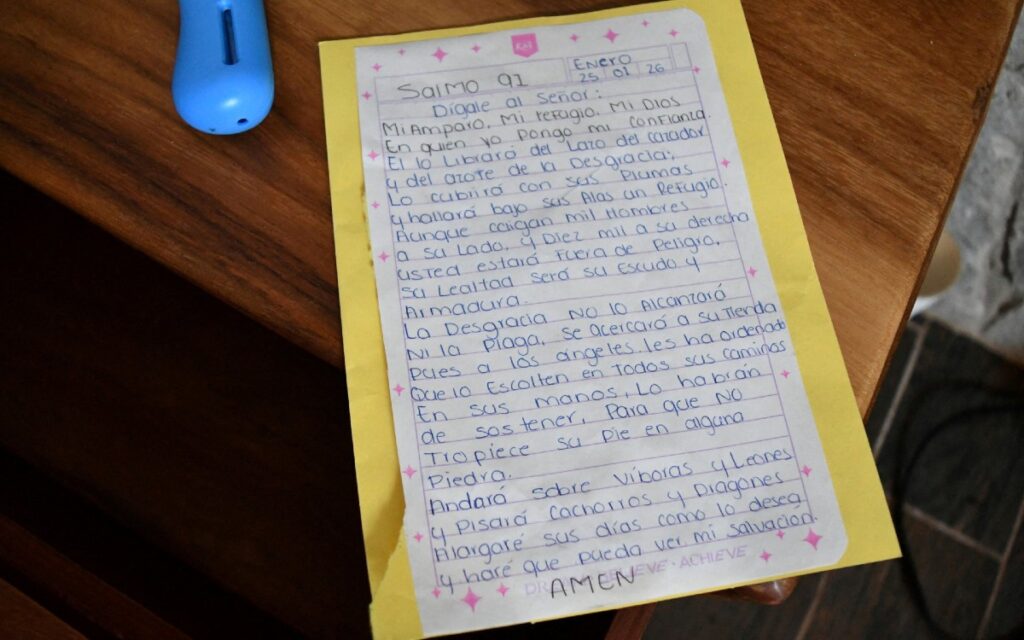 Salmo 91
Enero
25 01 26
Dígale al Señor:
Mi Amparo, Mi refugio, Mi Dios
En quien yo Pongo mi confianza.
El lo Librará del Lazo del cazador
y del azote de la Desgracia;
Lo cubrirá con sus Plumas
y hallará bajo sus Alas un Refugio.
Aunque caigan mil Hombres
a su Lado, y Diez mil a su derecha
usted estará Fuera de Peligro,
su Lealtad será su Escudo y
Armadura.
La Desgracia No lo Alcanzará
Ni la Plaga, se Acercará a su Tienda
Pues a los ángeles les ha ordenado
Que lo Escolten en Todos sus caminos
En sus manos, Lo habrán
de sostener, Para que NO
Tropiece su Pie en alguna
Piedra.
Andará sobre Víboras y Leones
y Pisará Cachorros y Dragones
Alargaré sus días como lo desea
y haré que pueda ver mi salvación.
ACHIEVE
AMEN